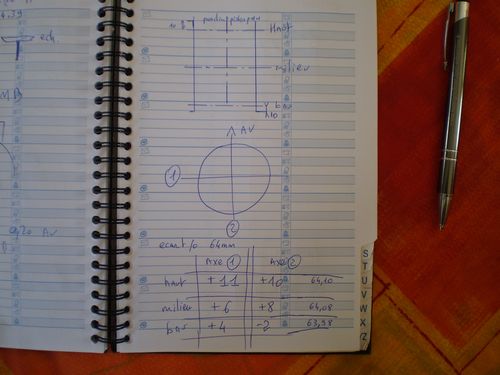 ech.
MB
Av
Haut
milieu
bas
10
AV
1
2
ecart p/o 64mm
Axe 1 Axe 2
haut +11 +10 64,10
milieu +6 +8 64,08
bas +4 -2 63,98
S
T
U
V
W
X
Y
Z